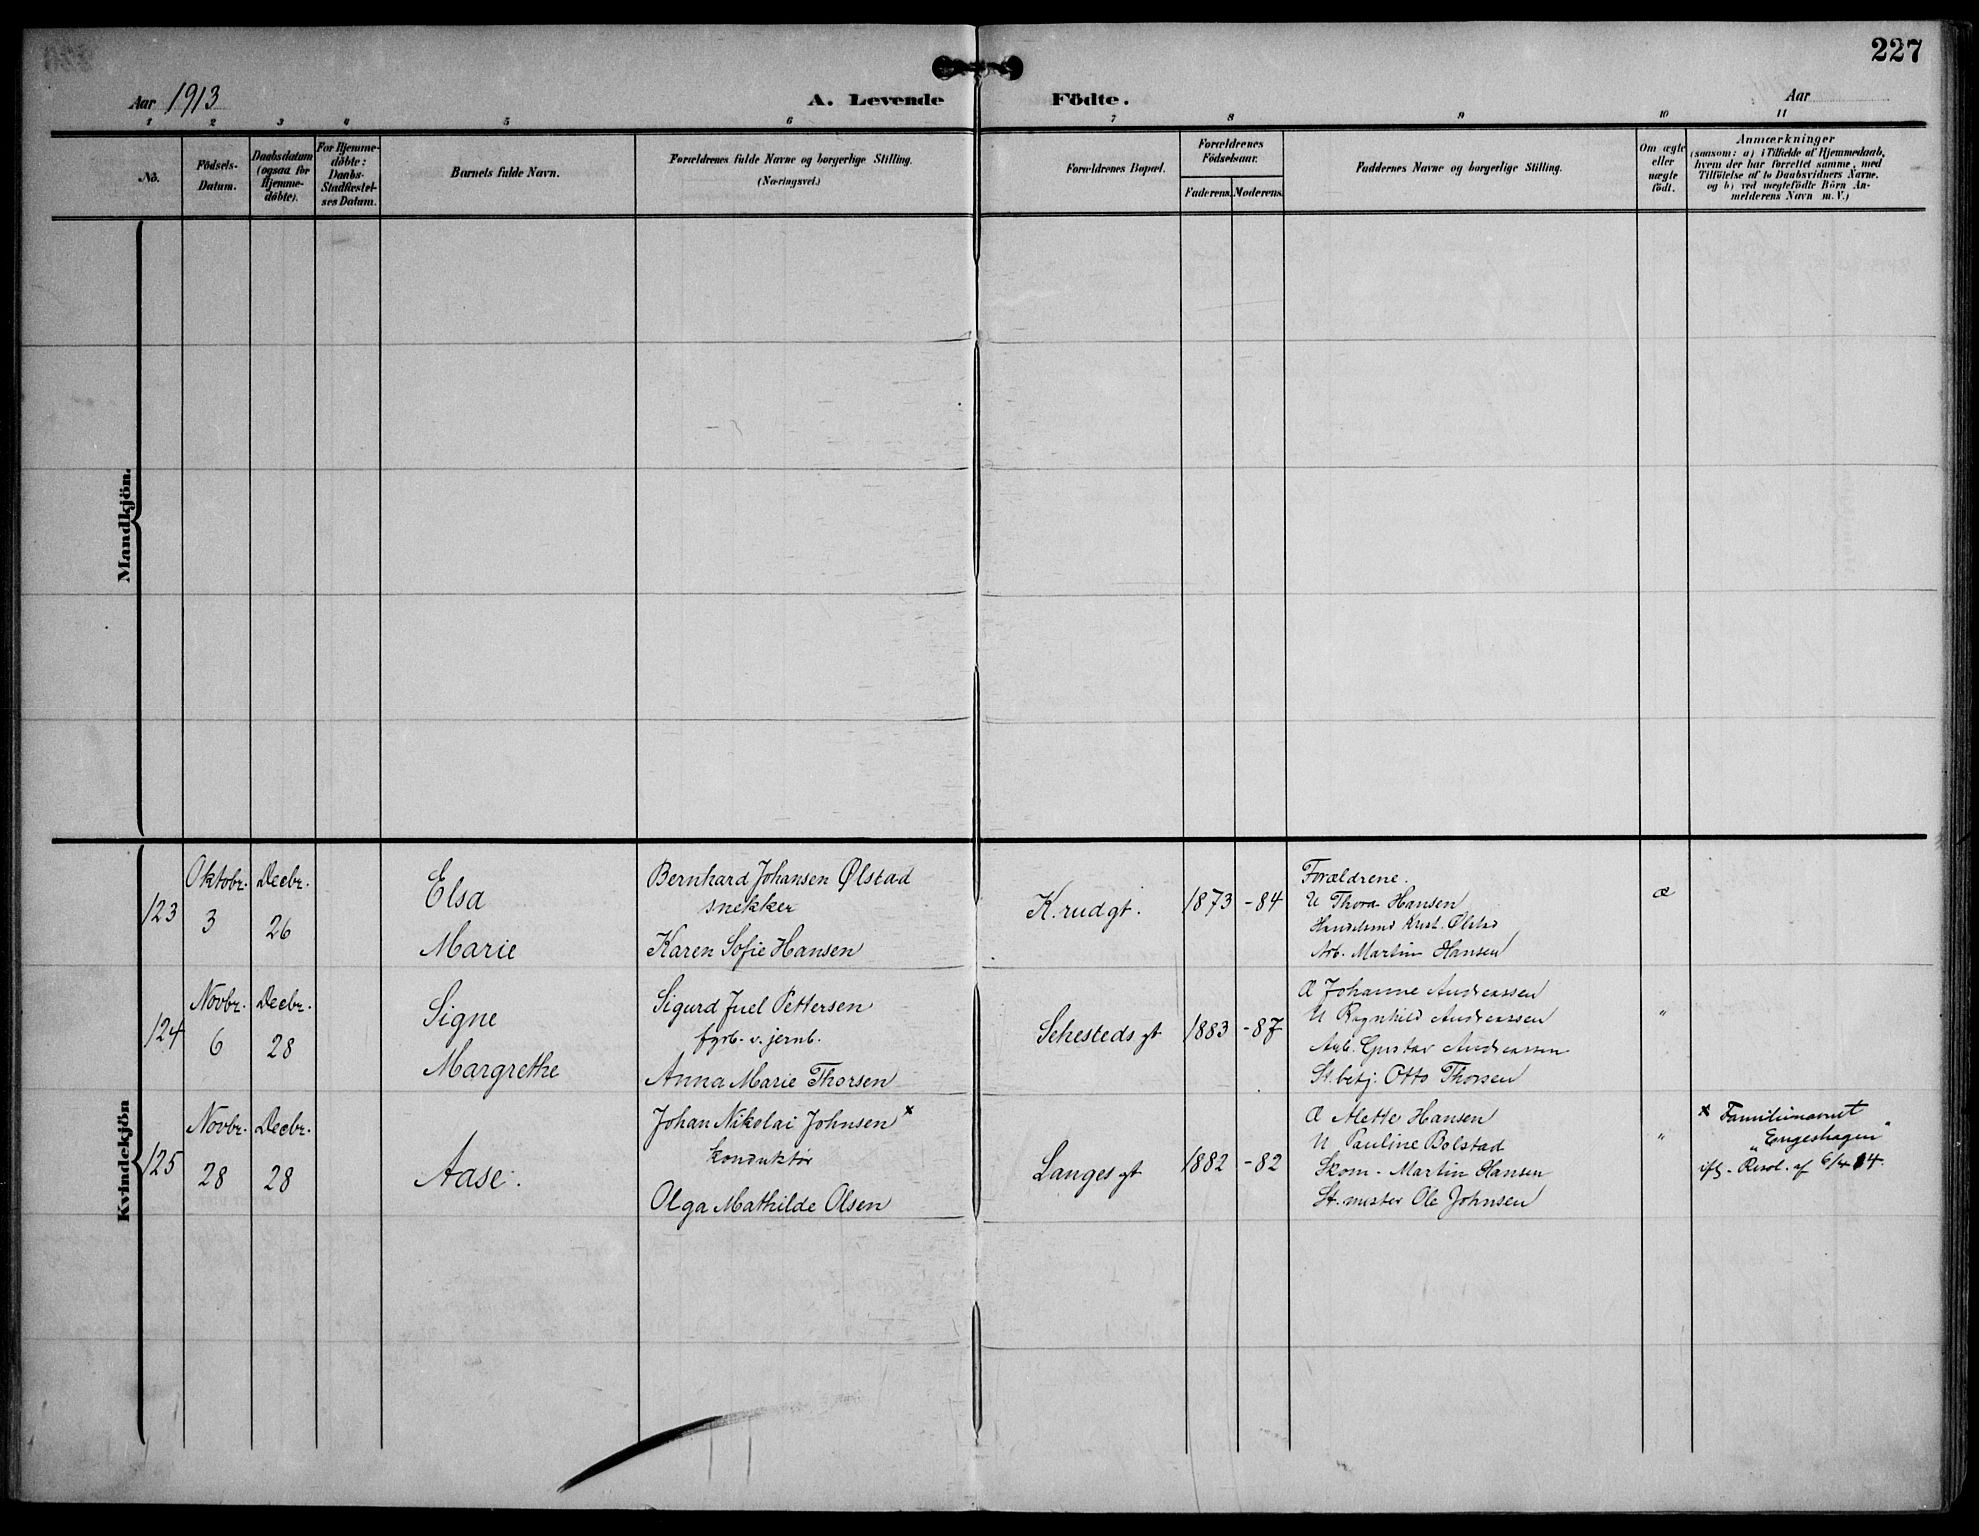 227
Aar 1913
A. Levende Födte.
Aar
1 2 3 4 5 6 7 8 9 10 11
No.
Födsels-
Datum.
Daabsdatum
(ogsaa for
Hjemme-
döbte).
For Hjemme-
döbte:
Daabs-
Stadfæstel-
ses Datum.
Barnets fulde Navn.
Forældrenes fulde Navne og borgerlige Stilling.
(Næringsvei.)
Forældrenes Bopæl.
Forældrenes
Födselsaar.
Faderens. Moderens.
Faddernes Navne og borgerlige Stilling.
Om ægte
eller
uægte
födt.
Anmærkninger
(saasom: a) i Tilfælde af Hjemmedaab,
hvem der har forrettet samme, med
Tilföielse af to Daabsvidners Navne.
og b) ved uægtefödte Börn An-
melderens Navn m. V.)
Mandkjön.
Kvindekjön
123
Oktobr.
3
Decbr.
26
Elsa
Marie
Bernhard Johansen Ølstad
snekker
Karen Sofie Hansen
K. rudgt.
1873 -84
Forældrene.
U Thora Hansen
Handelsmd Krist. Ølstad
Arb. Martin Hansen
æ
124
Novbr.
6
Decbr.
28
Signe
Margrethe
Sigurd Juel Pettersen
fgrb. v. jernb.
Anna Marie Thorsen
Sehesteds gt
1883 -87
Æ Johanne Andreassen
U Ragnhild Andreassen
Arb. Gustav Andreassen
St. betj. Otto Thorsen
"
125
Novbr.
28
Decbr.
28
Aase.
Johan Nikolai Johnsen x
konduktør
Olga Mathilde Olsen
Langes gt
1882 -82
Æ Alette Hansen
U Pauline Bolstad
Skom. Martin Hansen
St. mester Ole Johnsen
"
x Familienavnet
"Engeshagen"
ifg. Resol. af 6/4 14.